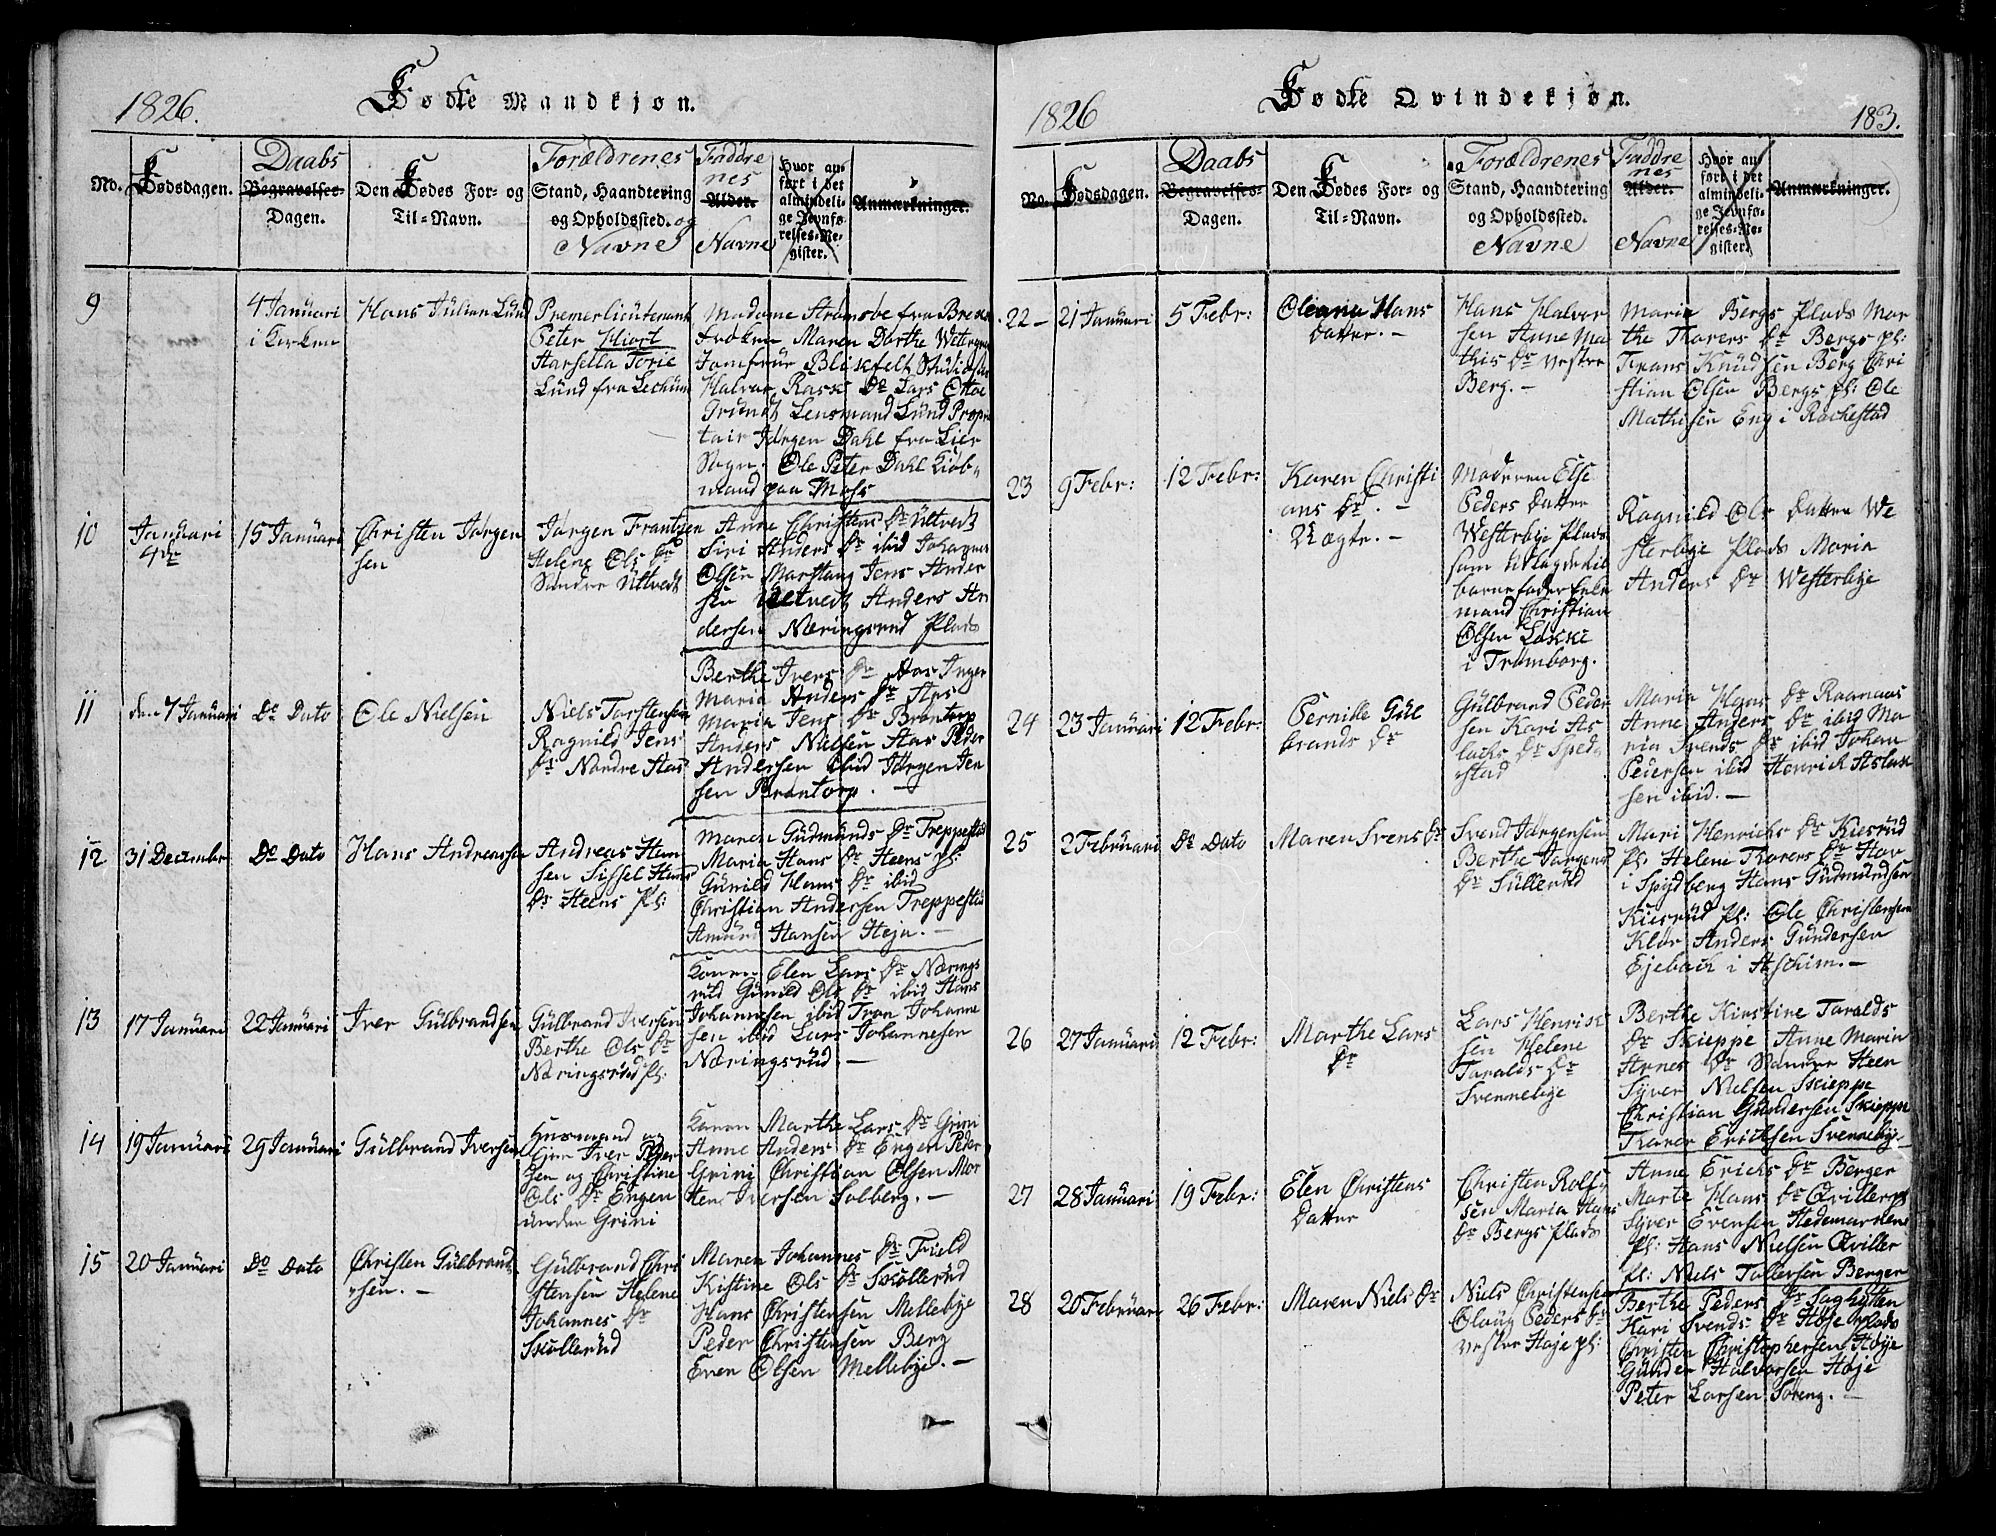 1826.
Fødte Mandkjøn.
No.
Fødsdagen.
Daabs
Begravelses-
Dagen.
Den Fødes For- og
Til-Navn.
Forældrenes
Stand, Haandtering
og Opholdssted. og
Navne
Faddre
nes
Alder.
Navne
Hvor an-
ført i det
almindeli-
ge Jevnfø-
relses-Re-
gister.
Anmærkninger.
9
4 Januari
i Kirken
Hans Julian Lund
Premerlieutenant
Peter Hiort
Lund fra
Madame Strømsøe fra
Frøken Maren Dorthe
Jomfrue Blixfelt Studiosus
Halvor Rask Do Lars Otto
Grundt Lensmand Lund Propri
tair Jørgen Dahl fra Lier
Sogn. Ole Peter Dahl Kiøb-
mand paa Moss
10
Januari
4de
15 Januari
Christen Jørgen
sen
Jørgen Frantzen
Helene Ols Dr
Søndre Ultvedt
Anne Christens Dr Ultvedt
Siri Anders Dr ibid Johannes
Olsen Jens Ander
sen Ultvedt Anders An
dersen Næringsrud Plads
11
den 7 Januari
Do Dato
Ole Nielsen
Niels Torstensen
Ragnild Jens
Dr Nordre Aas
Berthe Ivers Dr Aas Inger
Maria Anders Dr Aas
Maria Jens Dr Brøntorp
Anders Nielsen Aas Peder
Andersen ibid Jørgen Jen
sen Brøntorp. —
12
31 December
Do Dato
Hans Andreassen
Andreas Han
sen Sissel Hans
Dr Heens Pl:
Maren Gudmunds Dr Treppestad
Maria Hans Dr Heens pl:
Gunild Hans Dr ibid
Christian Andersen Treppestad
Amund Hansen —
13
17 Januari
22 Januari
Iver Gulbrandsen
Gulbrand Iversen
Berthe Ols Dr
Næringsrud pl:
Konen Elen Lars Dr Nærings
rud Gunild Ols Dr ibid Hans
Johannesen ibid Tron Johanne
sen ibid Lars Johannesen
Næringsrud —
14
19 Januari
29 Januari
Gulbrand Iversen
Huusmand og
Iver Peder
sen og Christine
Ols Dr Engen
under Grini
Konen Marthe Lars Dr Grini
Anne Anders Dr Engen Peder
Grini Christian Olsen Mor
ten Iversen Solberg. —
15
20 Januari
Do Dato
Christen Gulbrand
sen. —
Gulbrand Chri
stensen Helene
Johannes Dr
Skollerud
Maren Johannes Dr Field
Kistine Ols Dr Skollerud
Hans Christensen Mellebye
Peder Christensen Berg
Even Olsen Mellebye. —
1826
Fødte Qvindekjøn.
183.
No.
Fødsdagen.
Daabs
Begravelses-
Dagen.
Den Fødes For- og
Til-Navn.
Forældrenes
Stand, Haandtering
og Opholdssted.
Navne
Faddre
nes
Alder.
Navne
Hvor an-
ført i det
almindeli-
ge Jevnfø-
relses-Re-
gister.
Anmærkninger.
22 –
21 Januari
5 Febr:
Oleana Hans
Datter. —
Hans Halvor
sen Anne Ma
this Dr Vestre
Berg. —
Maria Bergs Plads Mar
the Thorers Dr Bergs pl:
Frans Knudsen Berg Chri
stian Olsen Bergs pl: Ole
Mathisen Eng i Rachestad
23
9 Febr:
12 Febr:
Karen Christi
ans Dr. —
Uægte. —
Moderen Else
Peders Datter
Westerbye Plads
som udlagde til
barnefader Enke
mand Christian
Olsen Løkke
i Trømborg.
Ragnild Ols Datter We
sterbye Plads Maria
Anders Dr Westerbye
24
23 Januari
12 Febr:
Pernille Gul
brands Dr
Gulbrand Peder
sen Kari As
lachs Dr Sped
stad
Maria Hans Dr Raanaas
Anne Anders Dr ibid Ma
ria Svends Dr ibid Johan
Pedersen ibid Henrich Aslak
sen ibid. —
25
2 Februari
Do Dato
Maren Svens Dr
Svend Jørgensen
Berthe Jørgens
Dr Sullerud
Mari Henrichs Dr Kiesrud
pl: Helene Thorers Dr Hov
i Spydberg Hans Gudmundsen
Kiesrud Pl: Ole Christensen
Klør Anders Gundersen
Ejebach i Aschim. —
26
27 Januari
12 Febr:
Marthe Lars
Dr
Lars Henrik
sen Helene
Taralds Dr
Svennebye
Berthe Kirstine Taralds
Dr Skieppe Anne Maria
Arnes Dr Søndre Heen
Syver Nielsen Skieppe
Christian Gundersen Skieppe
Thorer Ericksen Svennebye
27
28 Januari
19 Febr:
Elen Christens
Datter
Christen Rolf
sen Maria Hans
Dr Bergs Plads
Anne Erichs Dr Berger
Marte Hans Dr Qvillers
Syver Evensen Hedemarkens
Pl: Hans Nielsen Qviller
pl: Niels Tollersen Berger
28
20 Februar
26 Febr:
Maren Niels Dr
Niels Christensen
Oloug Peders Dr
Vestre Høje pl:
Berthe Peders Dr Saghytten
Kari Svends Dr Høje Plads
Christen Christophersen Høye
Gunder Halvorsen Høje
Peter Larsen Søreng. —